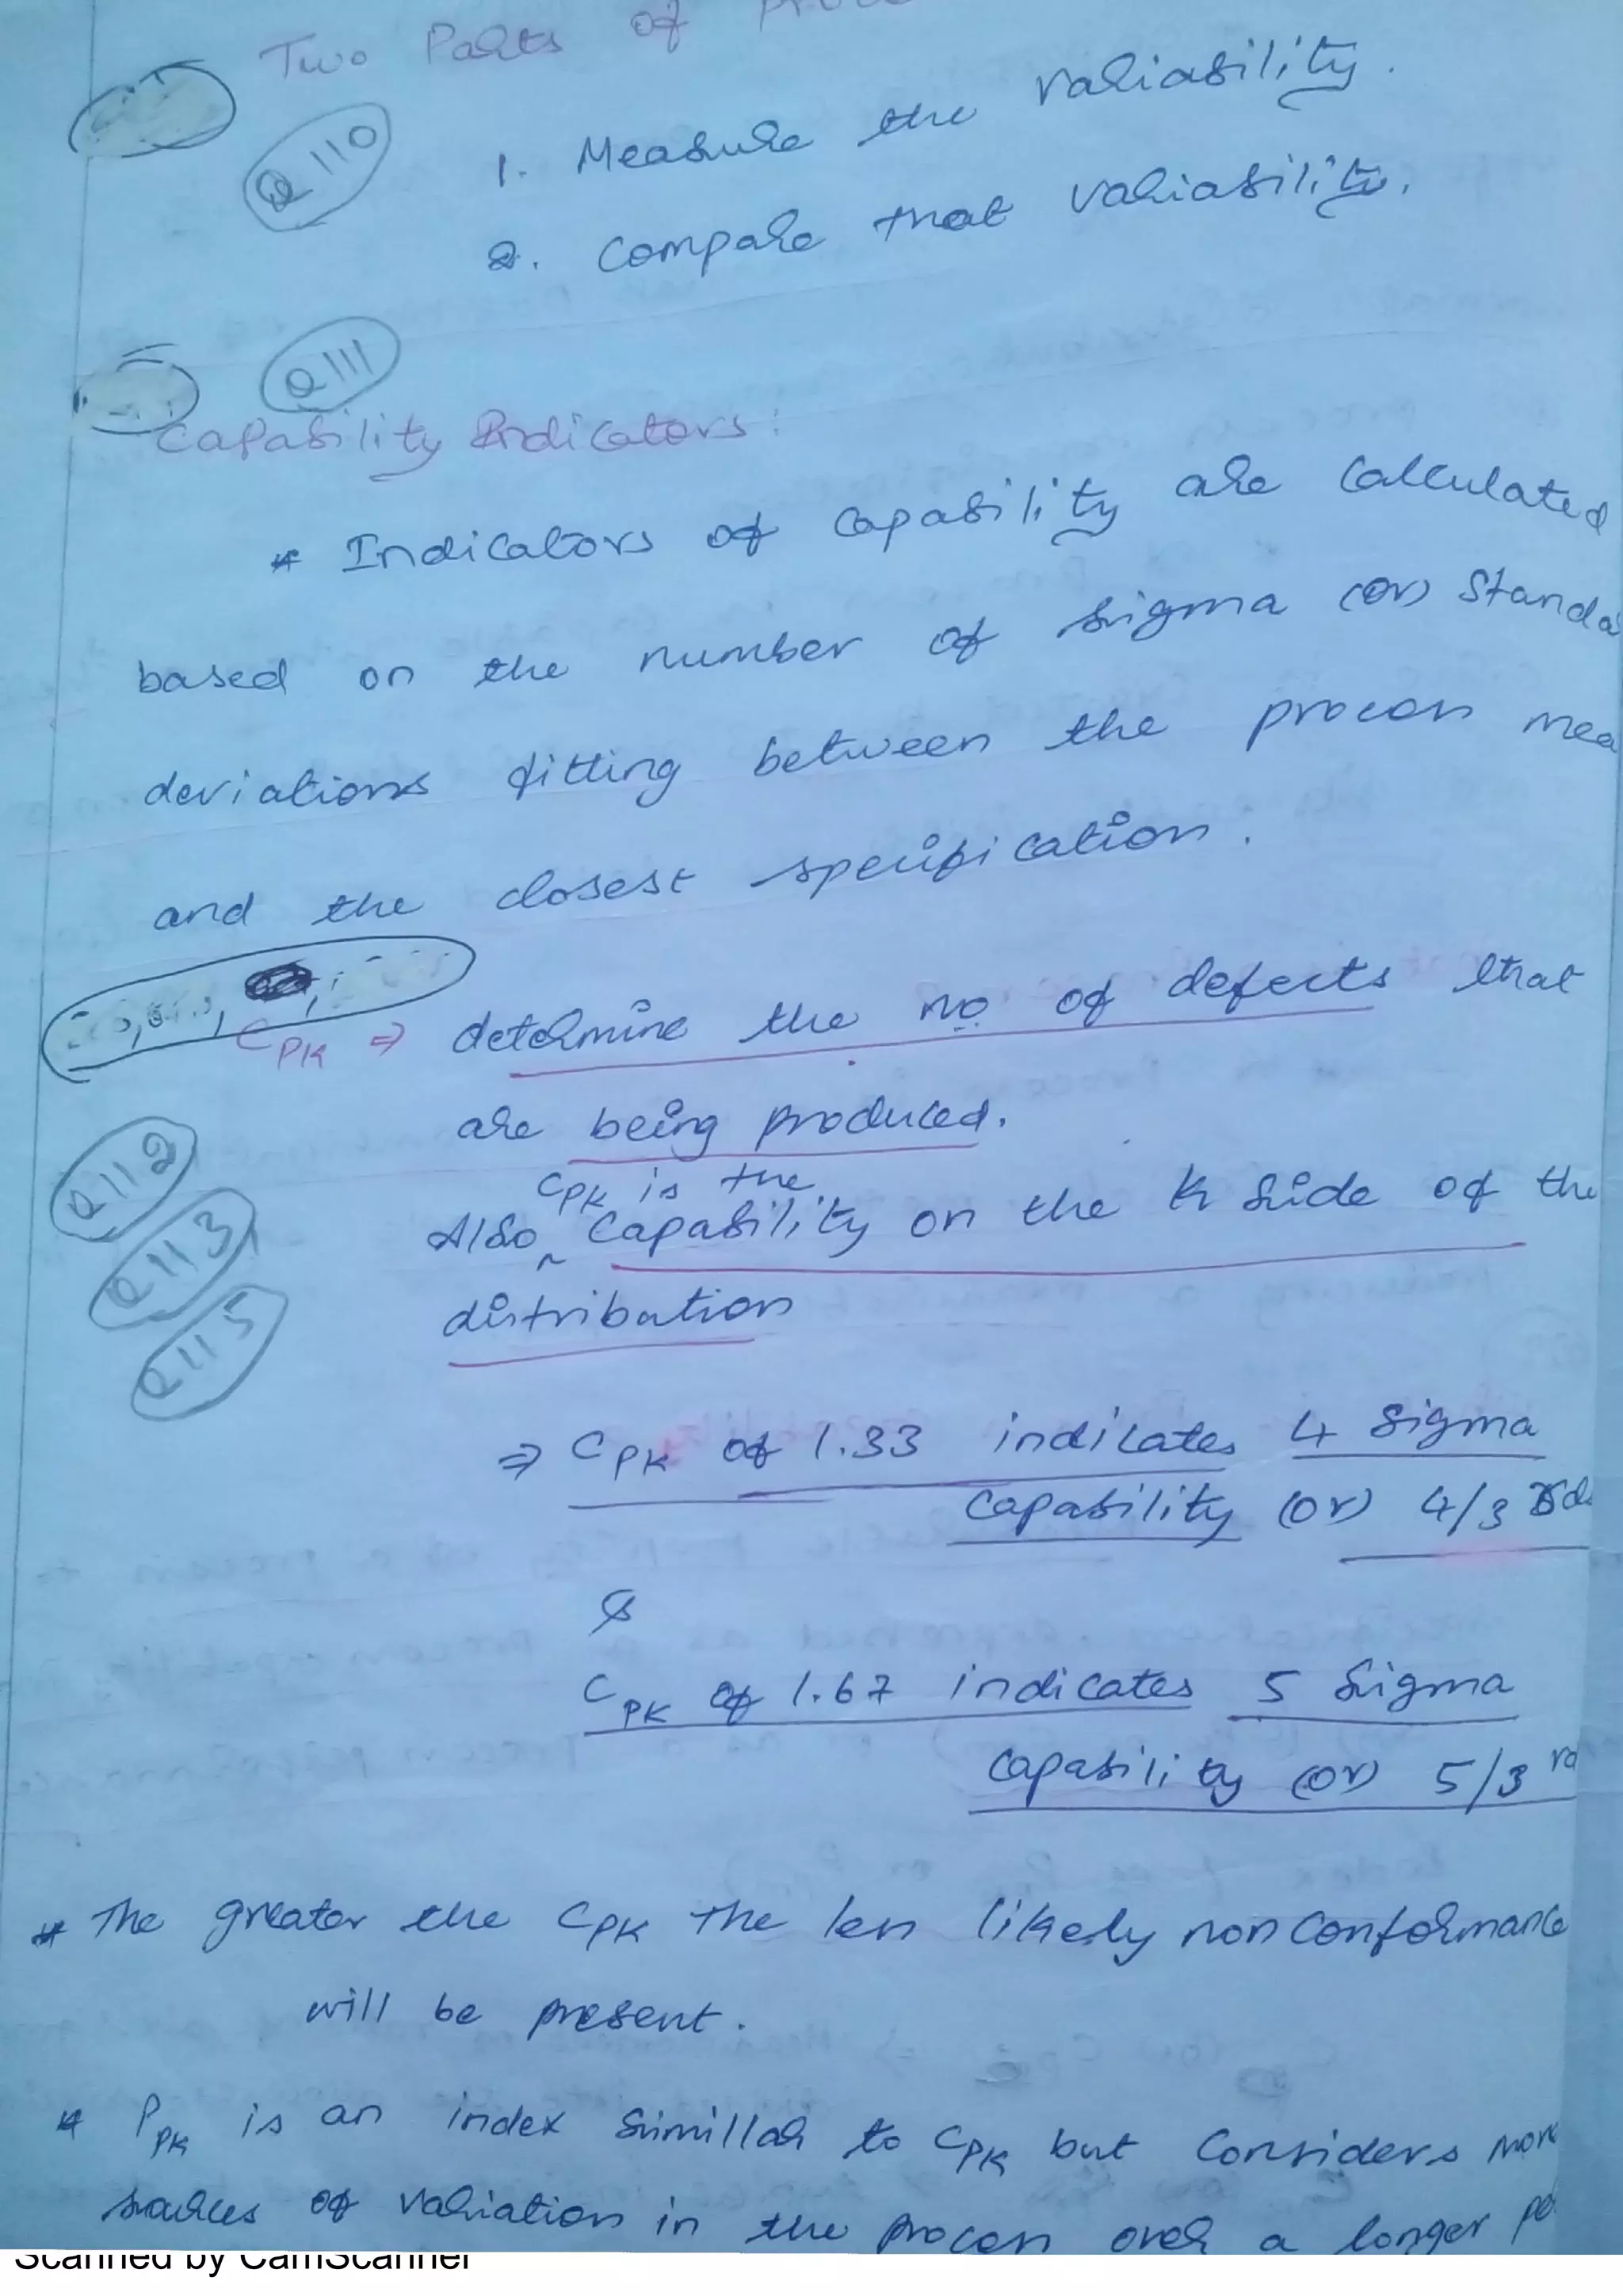 Two Parts of
Q 110
1. Measure the variability.
2. Compare that variability.
Q 111
Capability Indicators:
* Indicators of capability are calculated
based on the number of sigma (or) Standa
deviations fitting between the process mea
and the closest specification.
CPK ⇒ determine the no of defects that
are being produced.
Q 112
CPK is the
Also ^ Capability on the K side of the
Q 113
distribution
Q 115
⇒ CPK of 1.33 indicates 4 Sigma
Capability (or) 4/3 rd
&
CPK of 1.67 indicates 5 Sigma
Capability (or) 5/3 rd
* The greater the CPK the less likely non conformance
will be present.
* PPK is an index simillar to CPK but Considers more
sources of variation in the process over a longer pe
Scanned by CamScanner